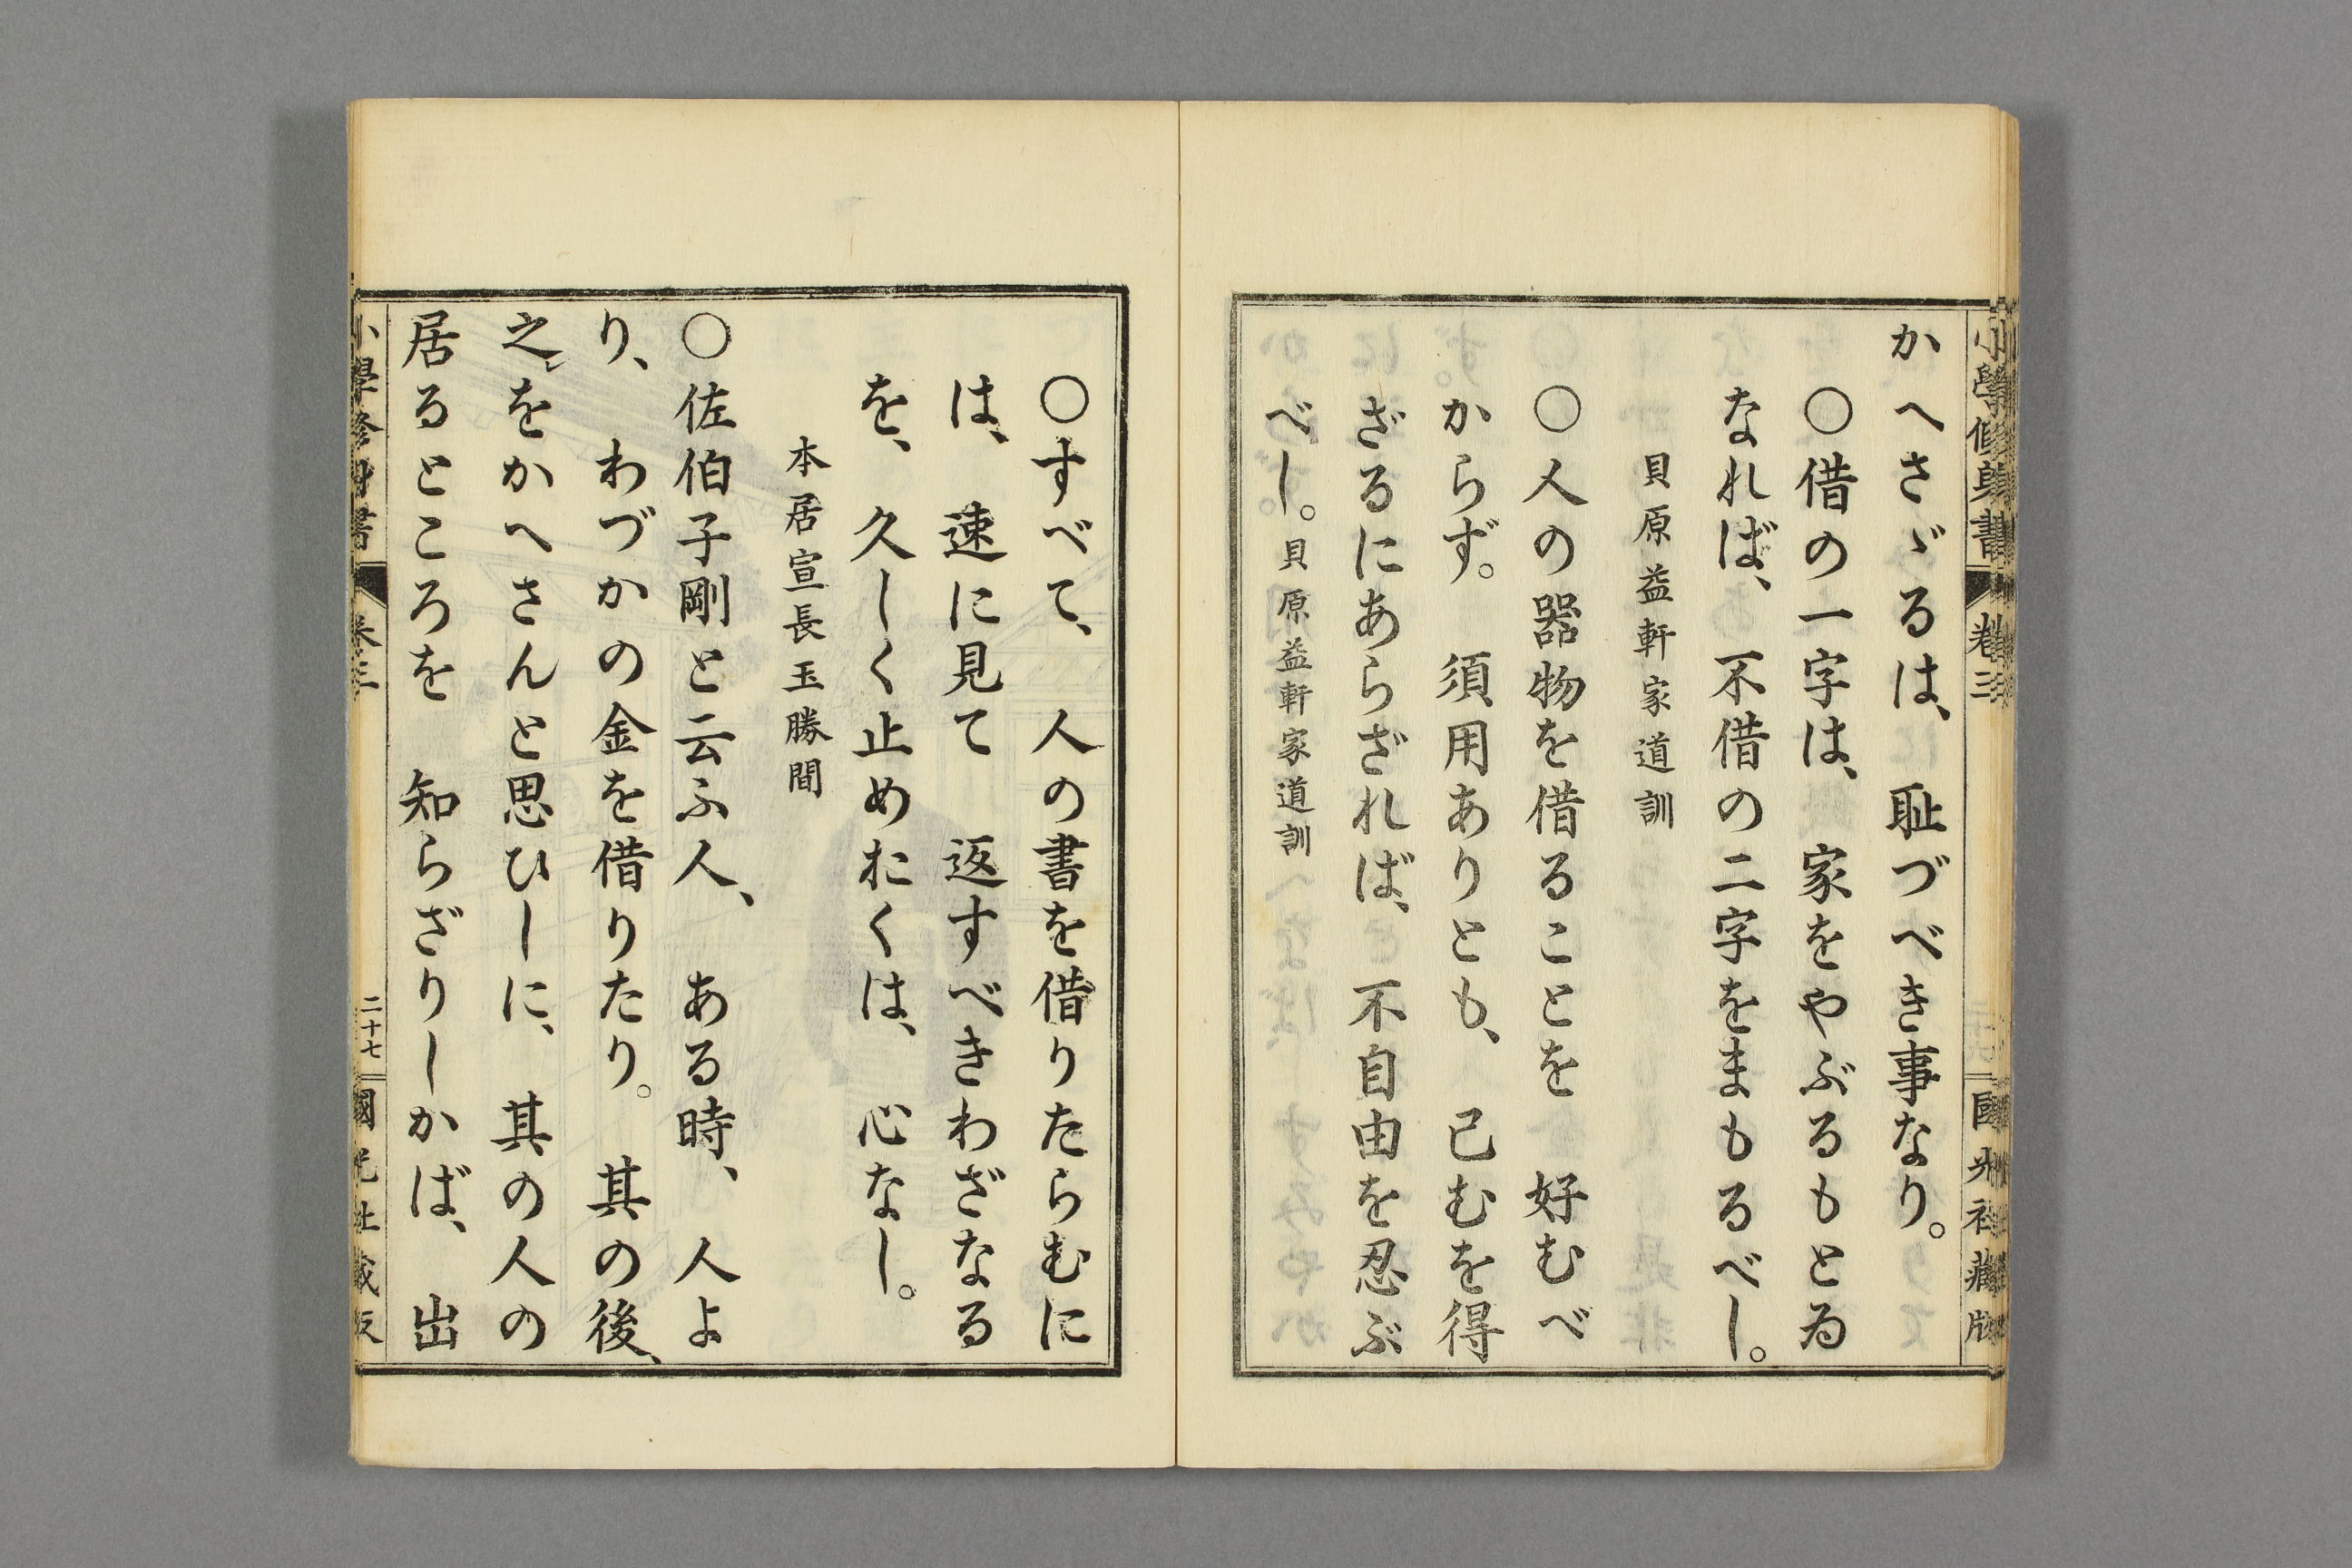 小學修身書　卷三　國光社藏版
かへさゞるは、耻づべき事なり。
〇借の一字は、家をやぶるもとゐ
なれば、不借の二字をまもるべし。
貝原益軒家道訓
〇人の器物を借ることを好むべ
からず。須用ありとも、已むを得
ざるにあらざれば、不自由を忍ぶ
べし。貝原益軒家道訓
〇すべて、人の書を借りたらむに
は、速に見て返すべきわざなる
を、久しく止めおくは、心なし。
本居宣長玉勝間
〇佐伯子剛と云ふ人、ある時、人よ
り、わづかの金を借りたり。其の後、
之をかへさんと思ひしに、其の人の
居るところを知らざりしかば、出
小學修身書　卷三　二十七　國光社藏版